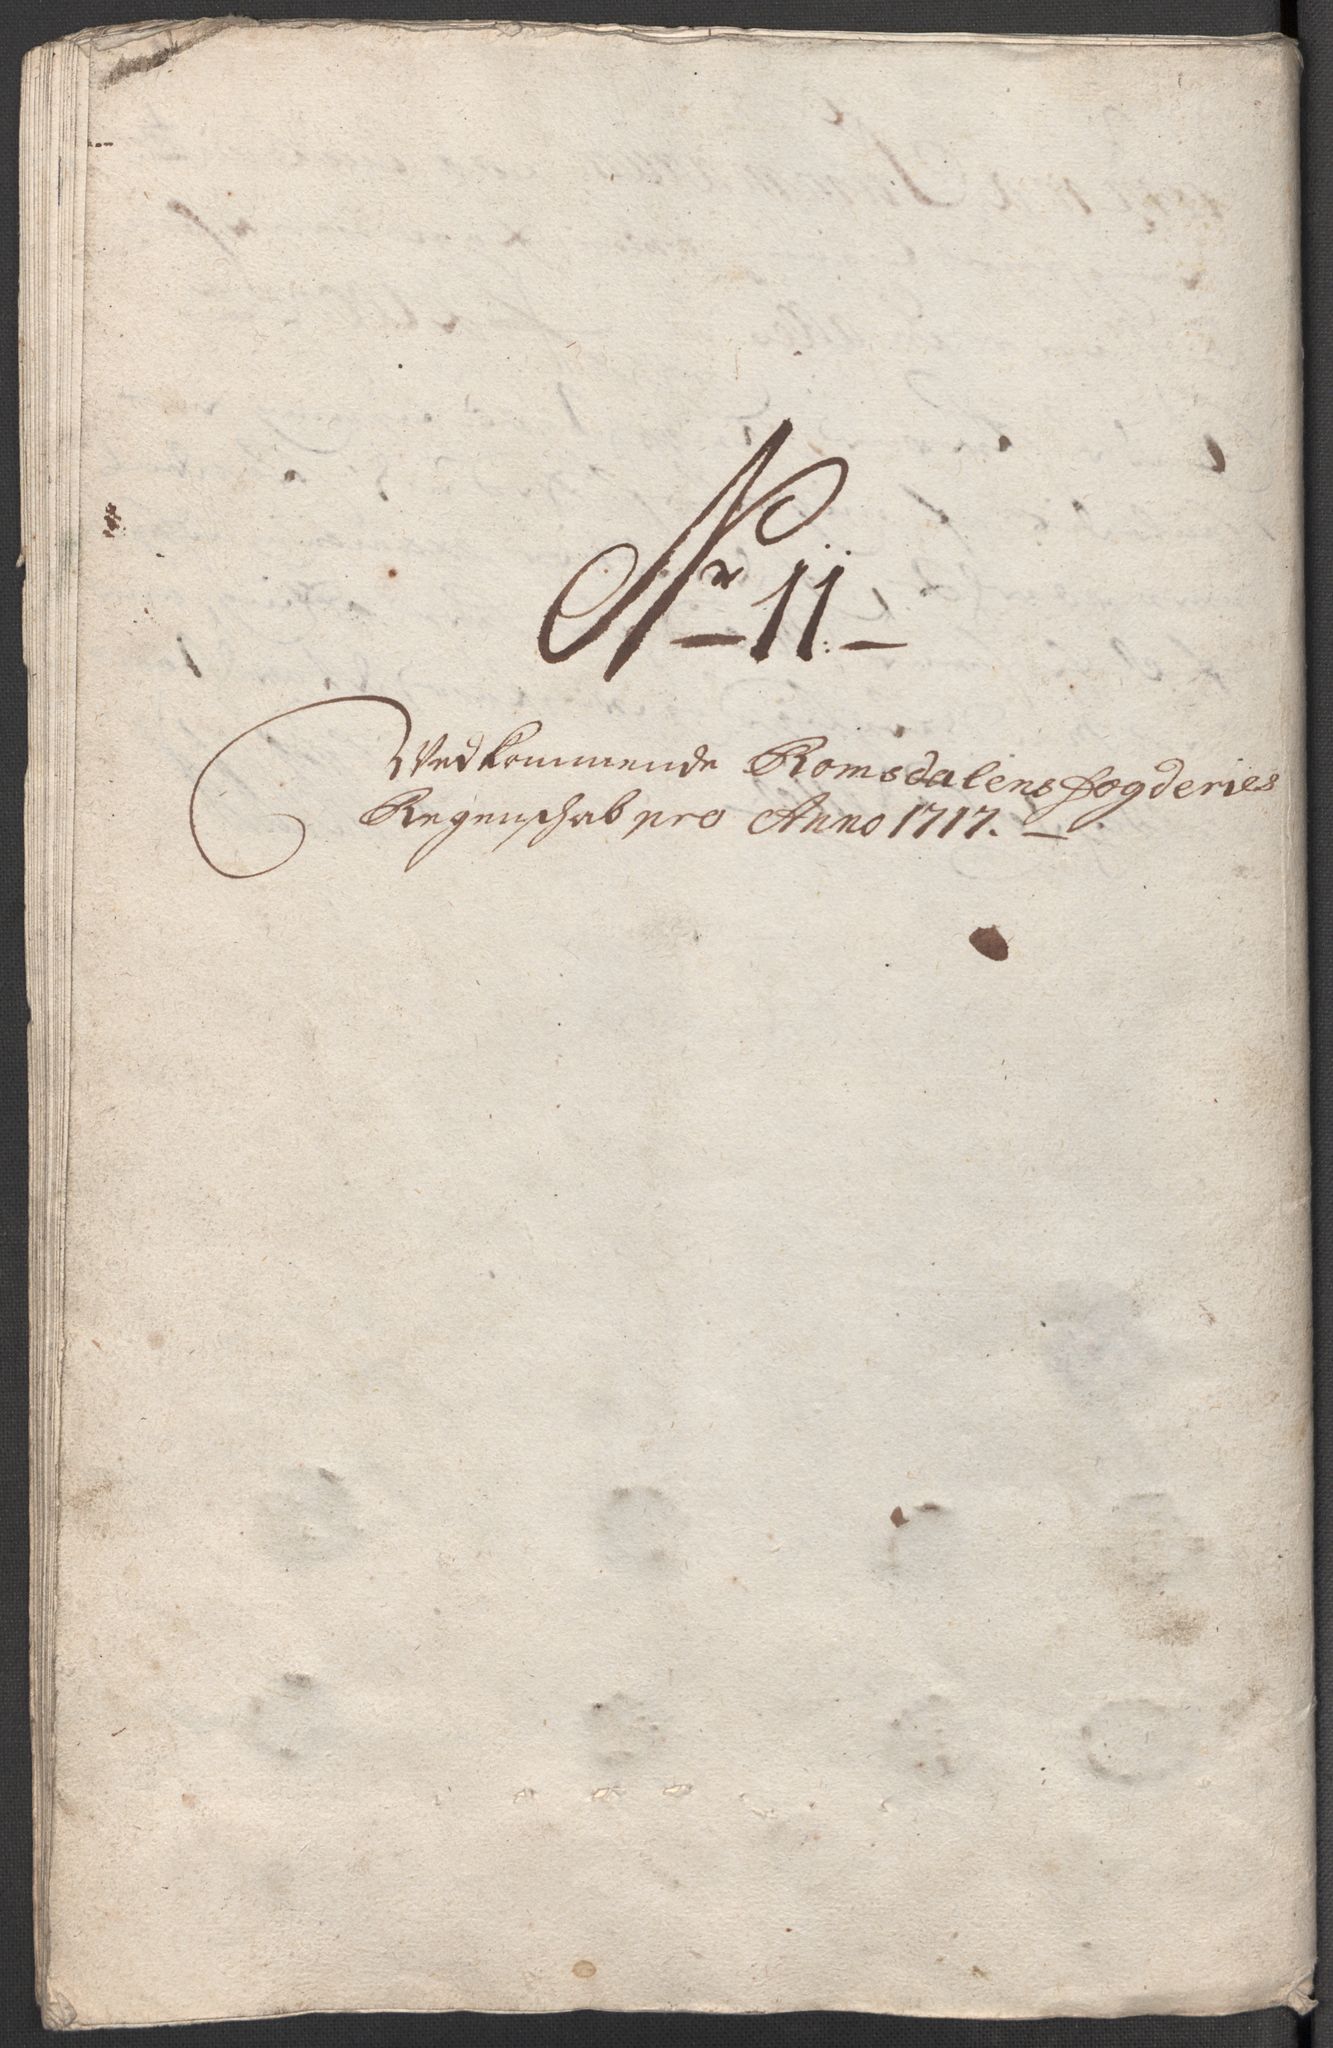 Nr 11
Vedkommende Romsdalens fogderies
Regenschab pro Anno 1717.